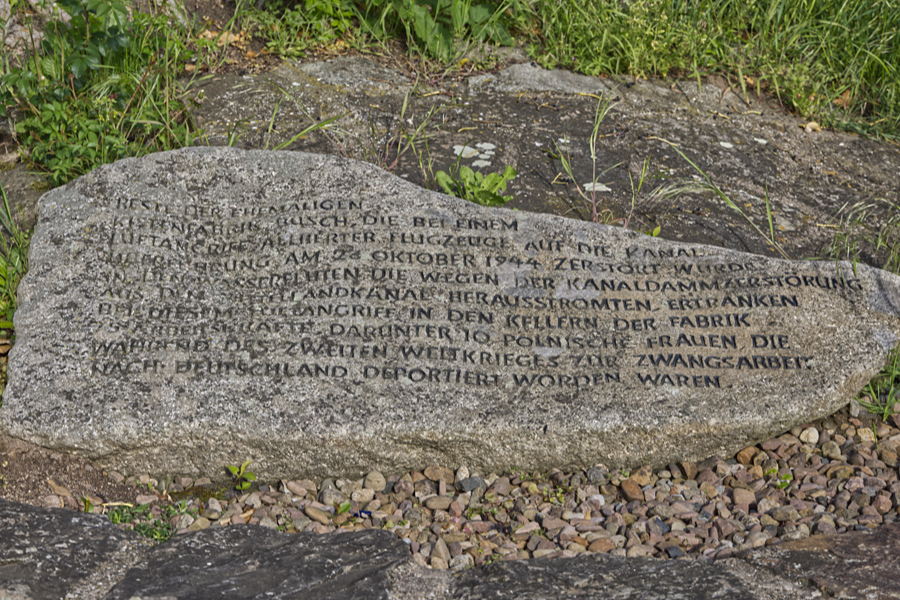 RESTE DER EHEMALIGEN
KISTENFABRIK BUSCH, DIE BEI EINEM
LUFTANGRIFF ALLIIERTER FLUGZEUGE AUF DIE KANAL-
AM 28 OKTOBER 1944 ZERSTÖRT WURDE
DIE WEGEN DER KANALDAMMZERSTÖRUNG
AUS DEM MITTELLANDKANAL HERAUSSTRÖMTEN, ERTRANKEN
BEI DIESEM LUFTANGRIFF IN DEN KELLERN DER FABRIK
ARBEITSKRÄFTE, DARUNTER 10 POLNISCHE FRAUEN DIE
WÄHREND DES ZWEITEN WELTKRIEGES ZUR ZWANGSARBEIT
NACH DEUTSCHLAND DEPORTIERT WORDEN WAREN.